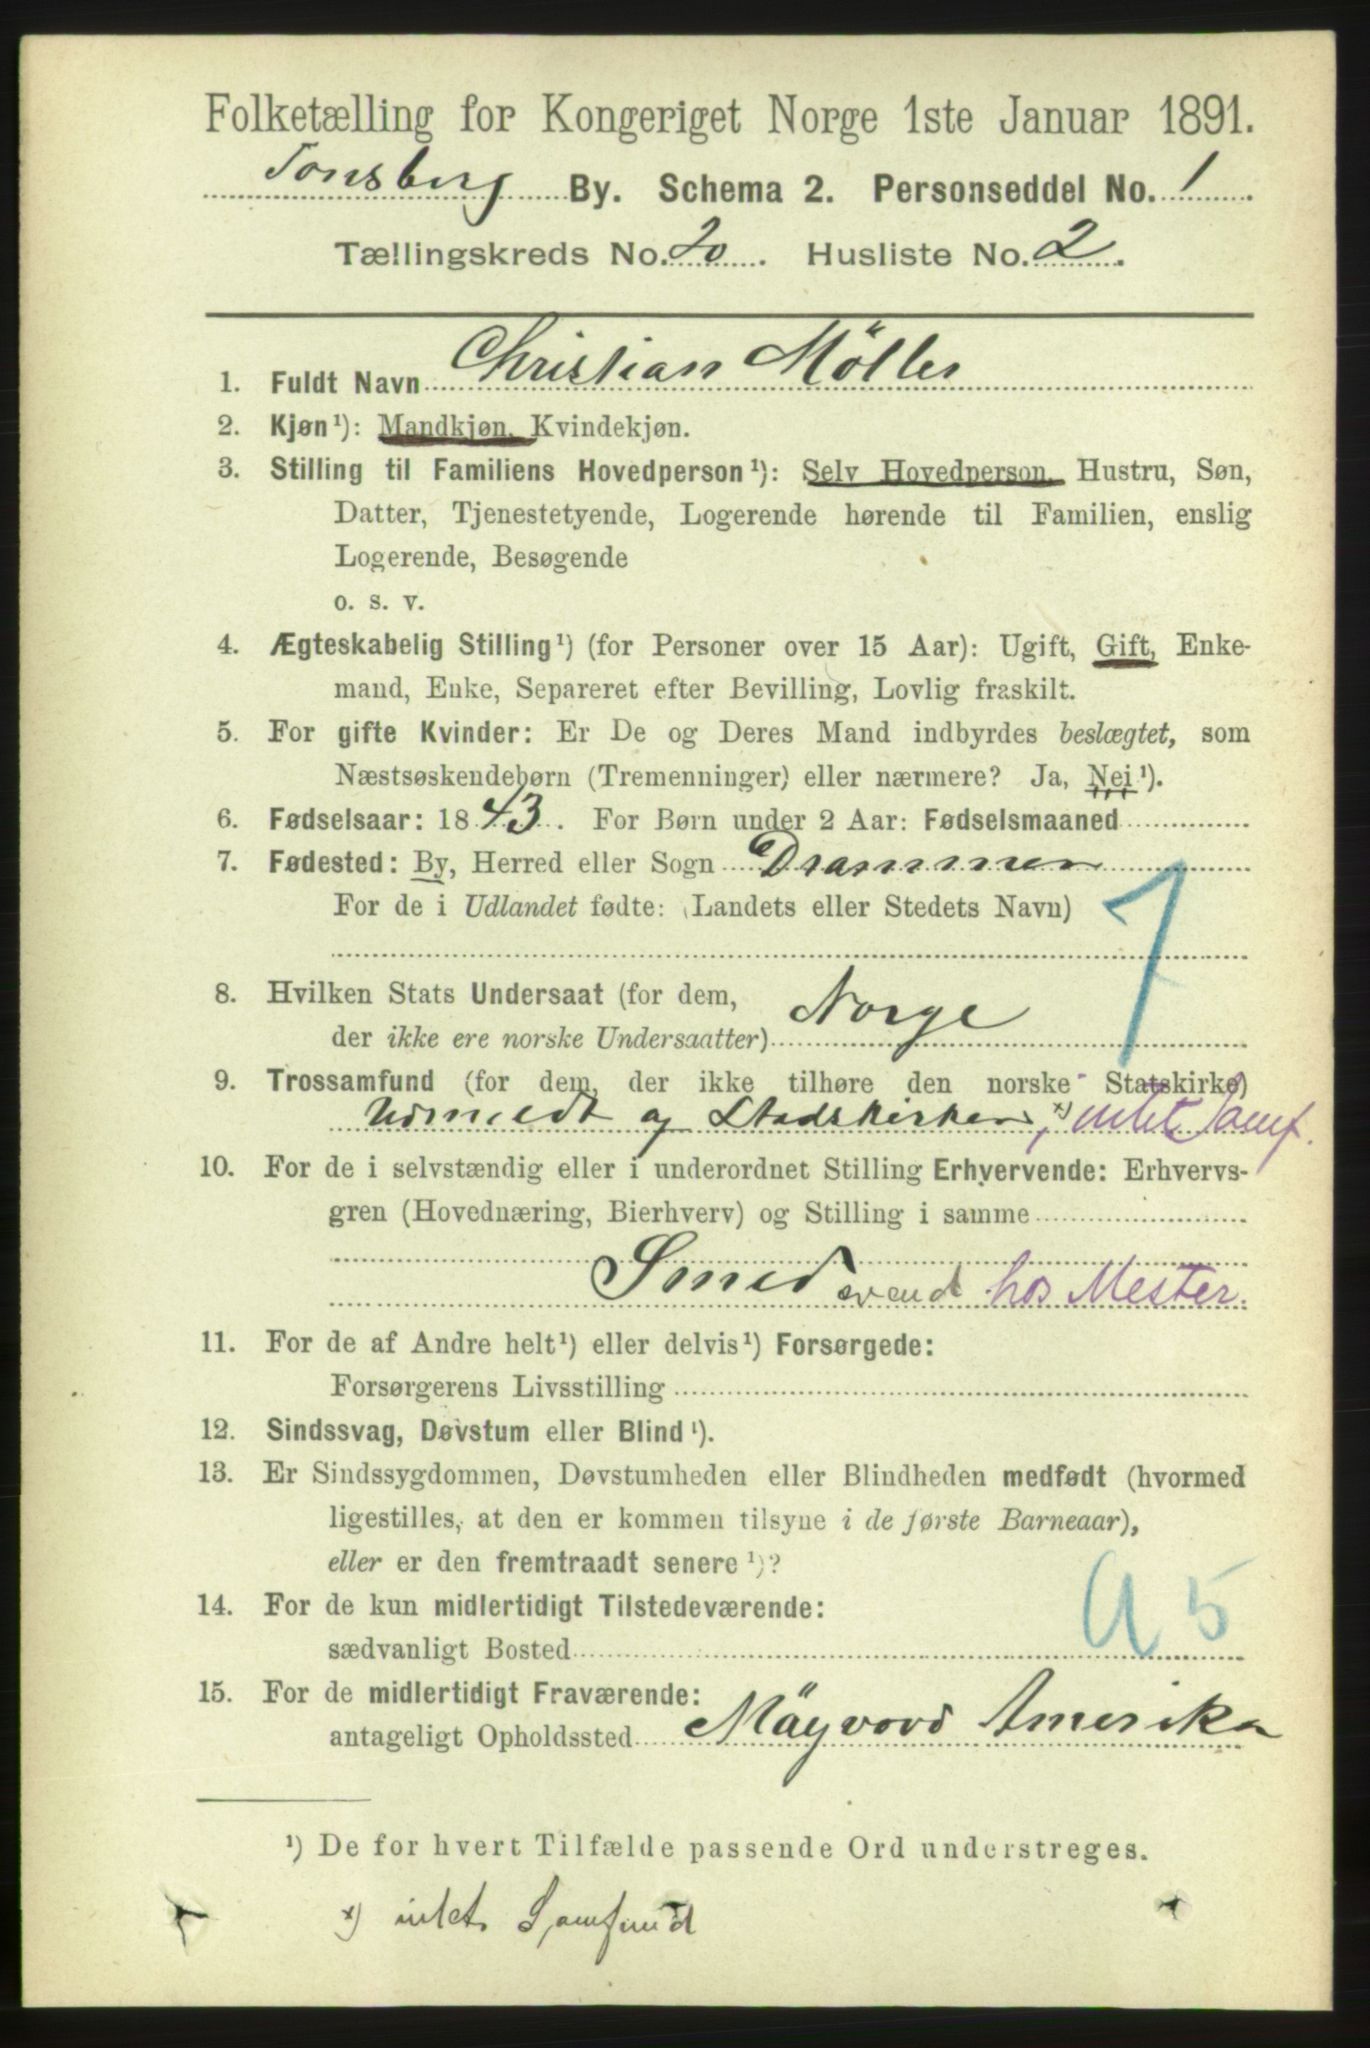 Folketælling for Kongeriget Norge 1ste Januar 1891.
Tønsberg By. Schema 2. Personseddel No. 1.
Tællingskreds No. 20. Husliste No. 2.
1. Fuldt Navn Christian Möller
2. Kjøn¹): Mandkjøn, Kvindekjøn.
3. Stilling til Familiens Hovedperson¹): Selv Hovedperson, Hustru, Søn,
Datter, Tjenestetyende, Logerende hørende til Familien, enslig
Logerende, Besøgende
o. s. v.
4. Ægteskabelig Stilling¹) (for Personer over 15 Aar): Ugift, Gift, Enke-
mand, Enke, Separeret efter Bevilling, Lovlig fraskilt.
5. For gifte Kvinder: Er De og Deres Mand indbyrdes beslægtet, som
Næstsøskendebørn (Tremenninger) eller nærmere? Ja, Nei¹).
6. Fødselsaar: 1843. For Børn under 2 Aar: Fødselsmaaned
7. Fødested: By, Herred eller Sogn Drammen
For de i Udlandet fødte: (Landets eller Stedets Navn)
1
8. Hvilken Stats Undersaat (for dem,
der ikke ere norske Undersaatter) Norge
9. Trossamfund (for dem, der ikke tilhøre den norske Statskirke)
Udmeldt af Stadskirken, x) intet Samf.
10. For de i selvstændig eller i underordnet Stilling Erhvervende: Erhvervs-
gren (Hovednæring, Bierhverv) og Stilling i samme
Smed svend hos Mester.
11. For de af Andre helt¹) eller delvis¹) Forsørgede:
Forsørgerens Livsstilling
12. Sindssvag, Døvstum eller Blind¹).
13. Er Sindssygdommen, Døvstumheden eller Blindheden medfødt (hvormed
ligestilles, at den er kommen tilsyne i de første Barneaar),
eller er den fremtraadt senere¹)?
14. For de kun midlertidigt Tilstedeværende:
sædvanligt Bosted
a 5
15. For de midlertidigt Fraværende:
antageligt Opholdssted Mäyvovd Amerika
¹) De for hvert Tilfælde passende Ord understreges.
x) intet Samfund